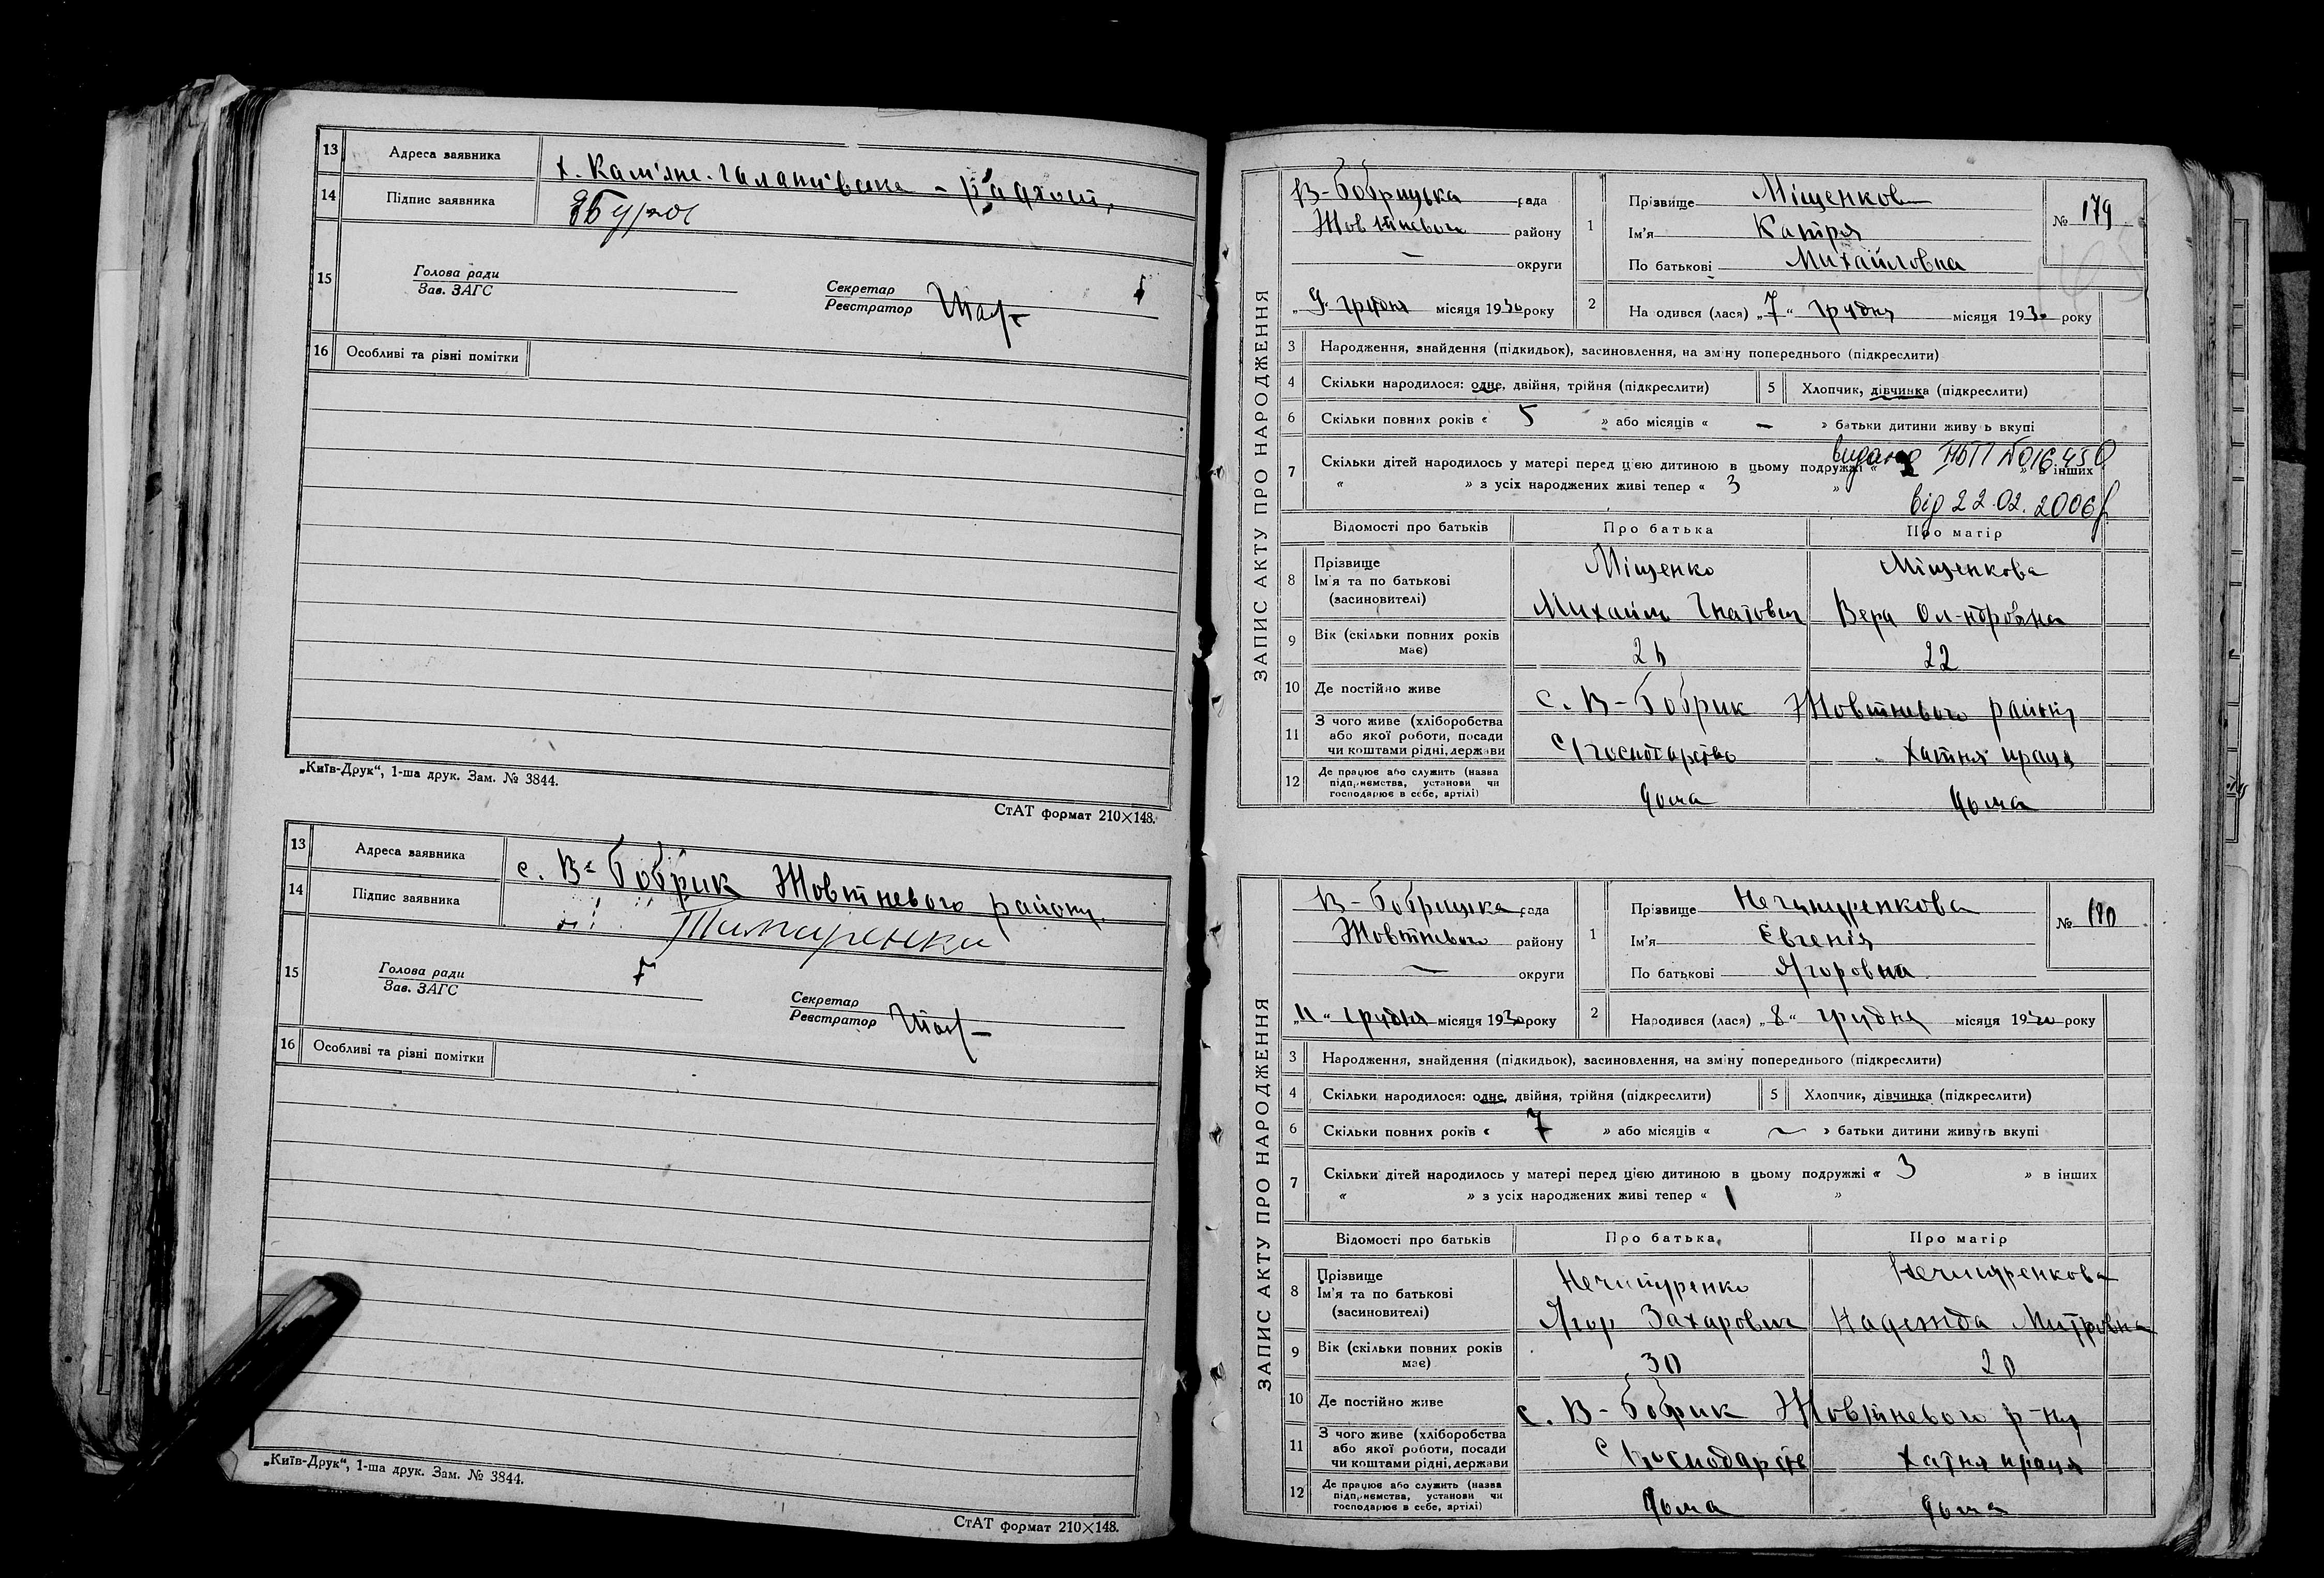 13 Адреса заявника х. Кам'яне.
14 Підпис заявника
15 Голова ради
Зав. ЗАГС
Секретар
Реєстратор
16 Особливі та різні помітки
„Київ-Друк“, 1-ша друк. Зам. № 3844.
СтАТ формат 210×148.
13 Адреса заявника с. В-Бобрик Жовтневого району.
14 Підпис заявника
15 Голова ради
Зав. ЗАГС
Секретар
Реєстратор
16 Особливі та різні помітки
„Київ-Друк“, 1-ша друк. Зам. № 3844.
СтАТ формат 210×148.
ЗАПИС АКТУ ПРО НАРОДЖЕННЯ
В-Бобрицька рада
Жовтневого району
— округи
„9“ грудня місяця 1930 року
1 Прізвище Міщенкова
Ім'я Катря
По батькові Михайловна
№ 179
2 На одився (лася) „7“ грудня місяця 1930 року
3 Народження, знайдення (підкидьок), засиновлення, на зміну попереднього (підкреслити)
4 Скільки народилося: одне, двійня, трійня (підкреслити)
5 Хлопчик, дівчинка (підкреслити)
6 Скільки повних років « 5 » або місяців « — » батьки дитини живуть вкупі
видано № 016450
7 Скільки дітей народилось у матері перед цією дитиною в цьому подружжі « » в інших
« » з усіх народжених живі тепер « 3 »
від 22.02.2006
Відомості про батьків
Про батька
Про матір
8 Прізвище
Ім'я та по батькові
(засиновителі)
Міщенко
Михайло Гнатович
Міщенкова
Вера Ол-ндровна
9 Вік (скільки повних років має)
22
10 Де постійно живе с. В-Бобрик Жовтневого району
11 З чого живе (хліборобства
або якої роботи, посади
чи коштами рідні, держави
С/господарство
хатня праця
12 Де працює або служить (назва
підприємства, установи чи
господарює в себе, артілі)
дома
дома
ЗАПИС АКТУ ПРО НАРОДЖЕННЯ
В-Бобрицка рада
Жовтневого району
— округи
„11“ грудня місяця 1930 року
1 Прізвище Нечипуренкова
Ім'я Євгенія
По батькові Ягоровна
№ 180
2 Народився (лася) „8“ грудня місяця 1930 року
3 Народження, знайдення (підкидьок), засиновлення, на зміну попереднього (підкреслити)
4 Скільки народилося: одне, двійня, трійня (підкреслити)
5 Хлопчик, дівчинка (підкреслити)
6 Скільки повних років « 7 » або місяців « — » батьки дитини живуть вкупі
7 Скільки дітей народилось у матері перед цією дитиною в цьому подружжі « 3 » в інших
« » з усіх народжених живі тепер « 1 »
Відомості про батьків
Про батька
Про матір
8 Прізвище
Ім'я та по батькові
(засиновителі)
Нечипуренко
Ягор Захарович
Нечипуренкова
Надежда Митровна
9 Вік (скільки повних років має)
30
20
10 Де постійно живе с. В-Бобрик Жовтневого р-ну
11 З чого живе (хліборобства
або якої роботи, посади
чи коштами рідні, держави
С/господарств
хатня праця
12 Де працює або служить (назва
підприємства, установи чи
господарює в себе, артілі)
дома
дома